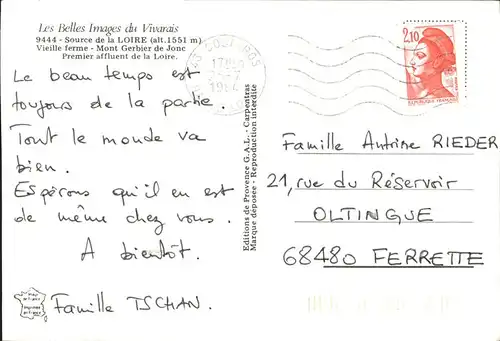 Les Belles Images du Vivarais
9444 - Source de la LOIRE (alt.1551 m)
Vieille ferme - Mont Gerbier de Jonc
Premier affluent de la Loire.
Le beau temps est
toujours de la partie.
Tout le monde va
bien.
Espérons qu'il en est
de même chez vous.
A bientôt.
Famille TSCHAN.
Editions de Provence G.A.L. - Carpentras
Marque déposée - Reproduction interdite
2,10
REPUBLIQUE FRANÇAISE
Famille Antoine RIEDER
21, rue du Réservoir
OLTINGUE
68480 FERRETTE